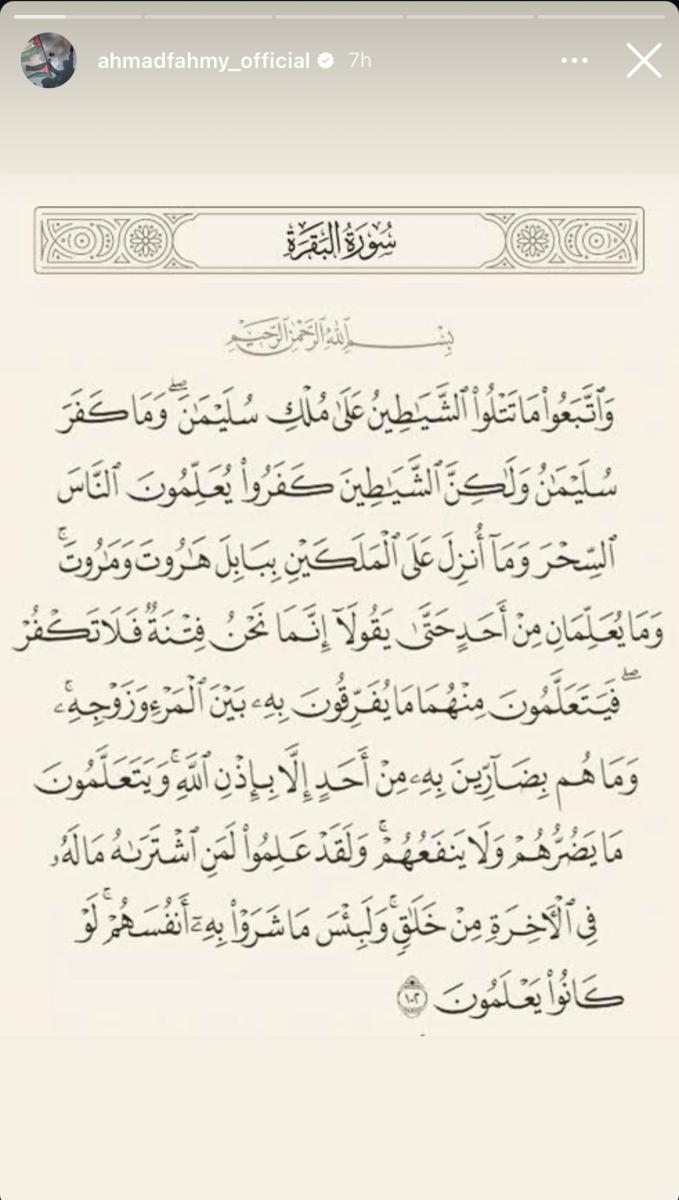 ahmadfahmy_official 7h
سُورَةُ البَقَرَةِ
بِسْمِ اللَّهِ الرَّحْمَٰنِ الرَّحِيمِ
وَٱتَّبَعُوا۟ مَا تَتْلُوا۟ ٱلشَّيَـٰطِينُ عَلَىٰ مُلْكِ سُلَيْمَـٰنَ ۖ وَمَا كَفَرَ
سُلَيْمَـٰنُ وَلَـٰكِنَّ ٱلشَّيَـٰطِينَ كَفَرُوا۟ يُعَلِّمُونَ ٱلنَّاسَ
ٱلسِّحْرَ وَمَآ أُنزِلَ عَلَى ٱلْمَلَكَيْنِ بِبَابِلَ هَـٰرُوتَ وَمَـٰرُوتَ ۚ
وَمَا يُعَلِّمَانِ مِنْ أَحَدٍ حَتَّىٰ يَقُولَآ إِنَّمَا نَحْنُ فِتْنَةٌ فَلَا تَكْفُرْ
ۖ فَيَتَعَلَّمُونَ مِنْهُمَا مَا يُفَرِّقُونَ بِهِۦ بَيْنَ ٱلْمَرْءِ وَزَوْجِهِۦ ۚ
وَمَا هُم بِضَآرِّينَ بِهِۦ مِنْ أَحَدٍ إِلَّا بِإِذْنِ ٱللَّهِ ۚ وَيَتَعَلَّمُونَ
مَا يَضُرُّهُمْ وَلَا يَنفَعُهُمْ ۚ وَلَقَدْ عَلِمُوا۟ لَمَنِ ٱشْتَرَىٰهُ مَا لَهُۥ
فِى ٱلْـَٔاخِرَةِ مِنْ خَلَـٰقٍ ۚ وَلَبِئْسَ مَا شَرَوْا۟ بِهِۦٓ أَنفُسَهُمْ ۚ لَوْ
كَانُوا۟ يَعْلَمُونَ ١٠٢